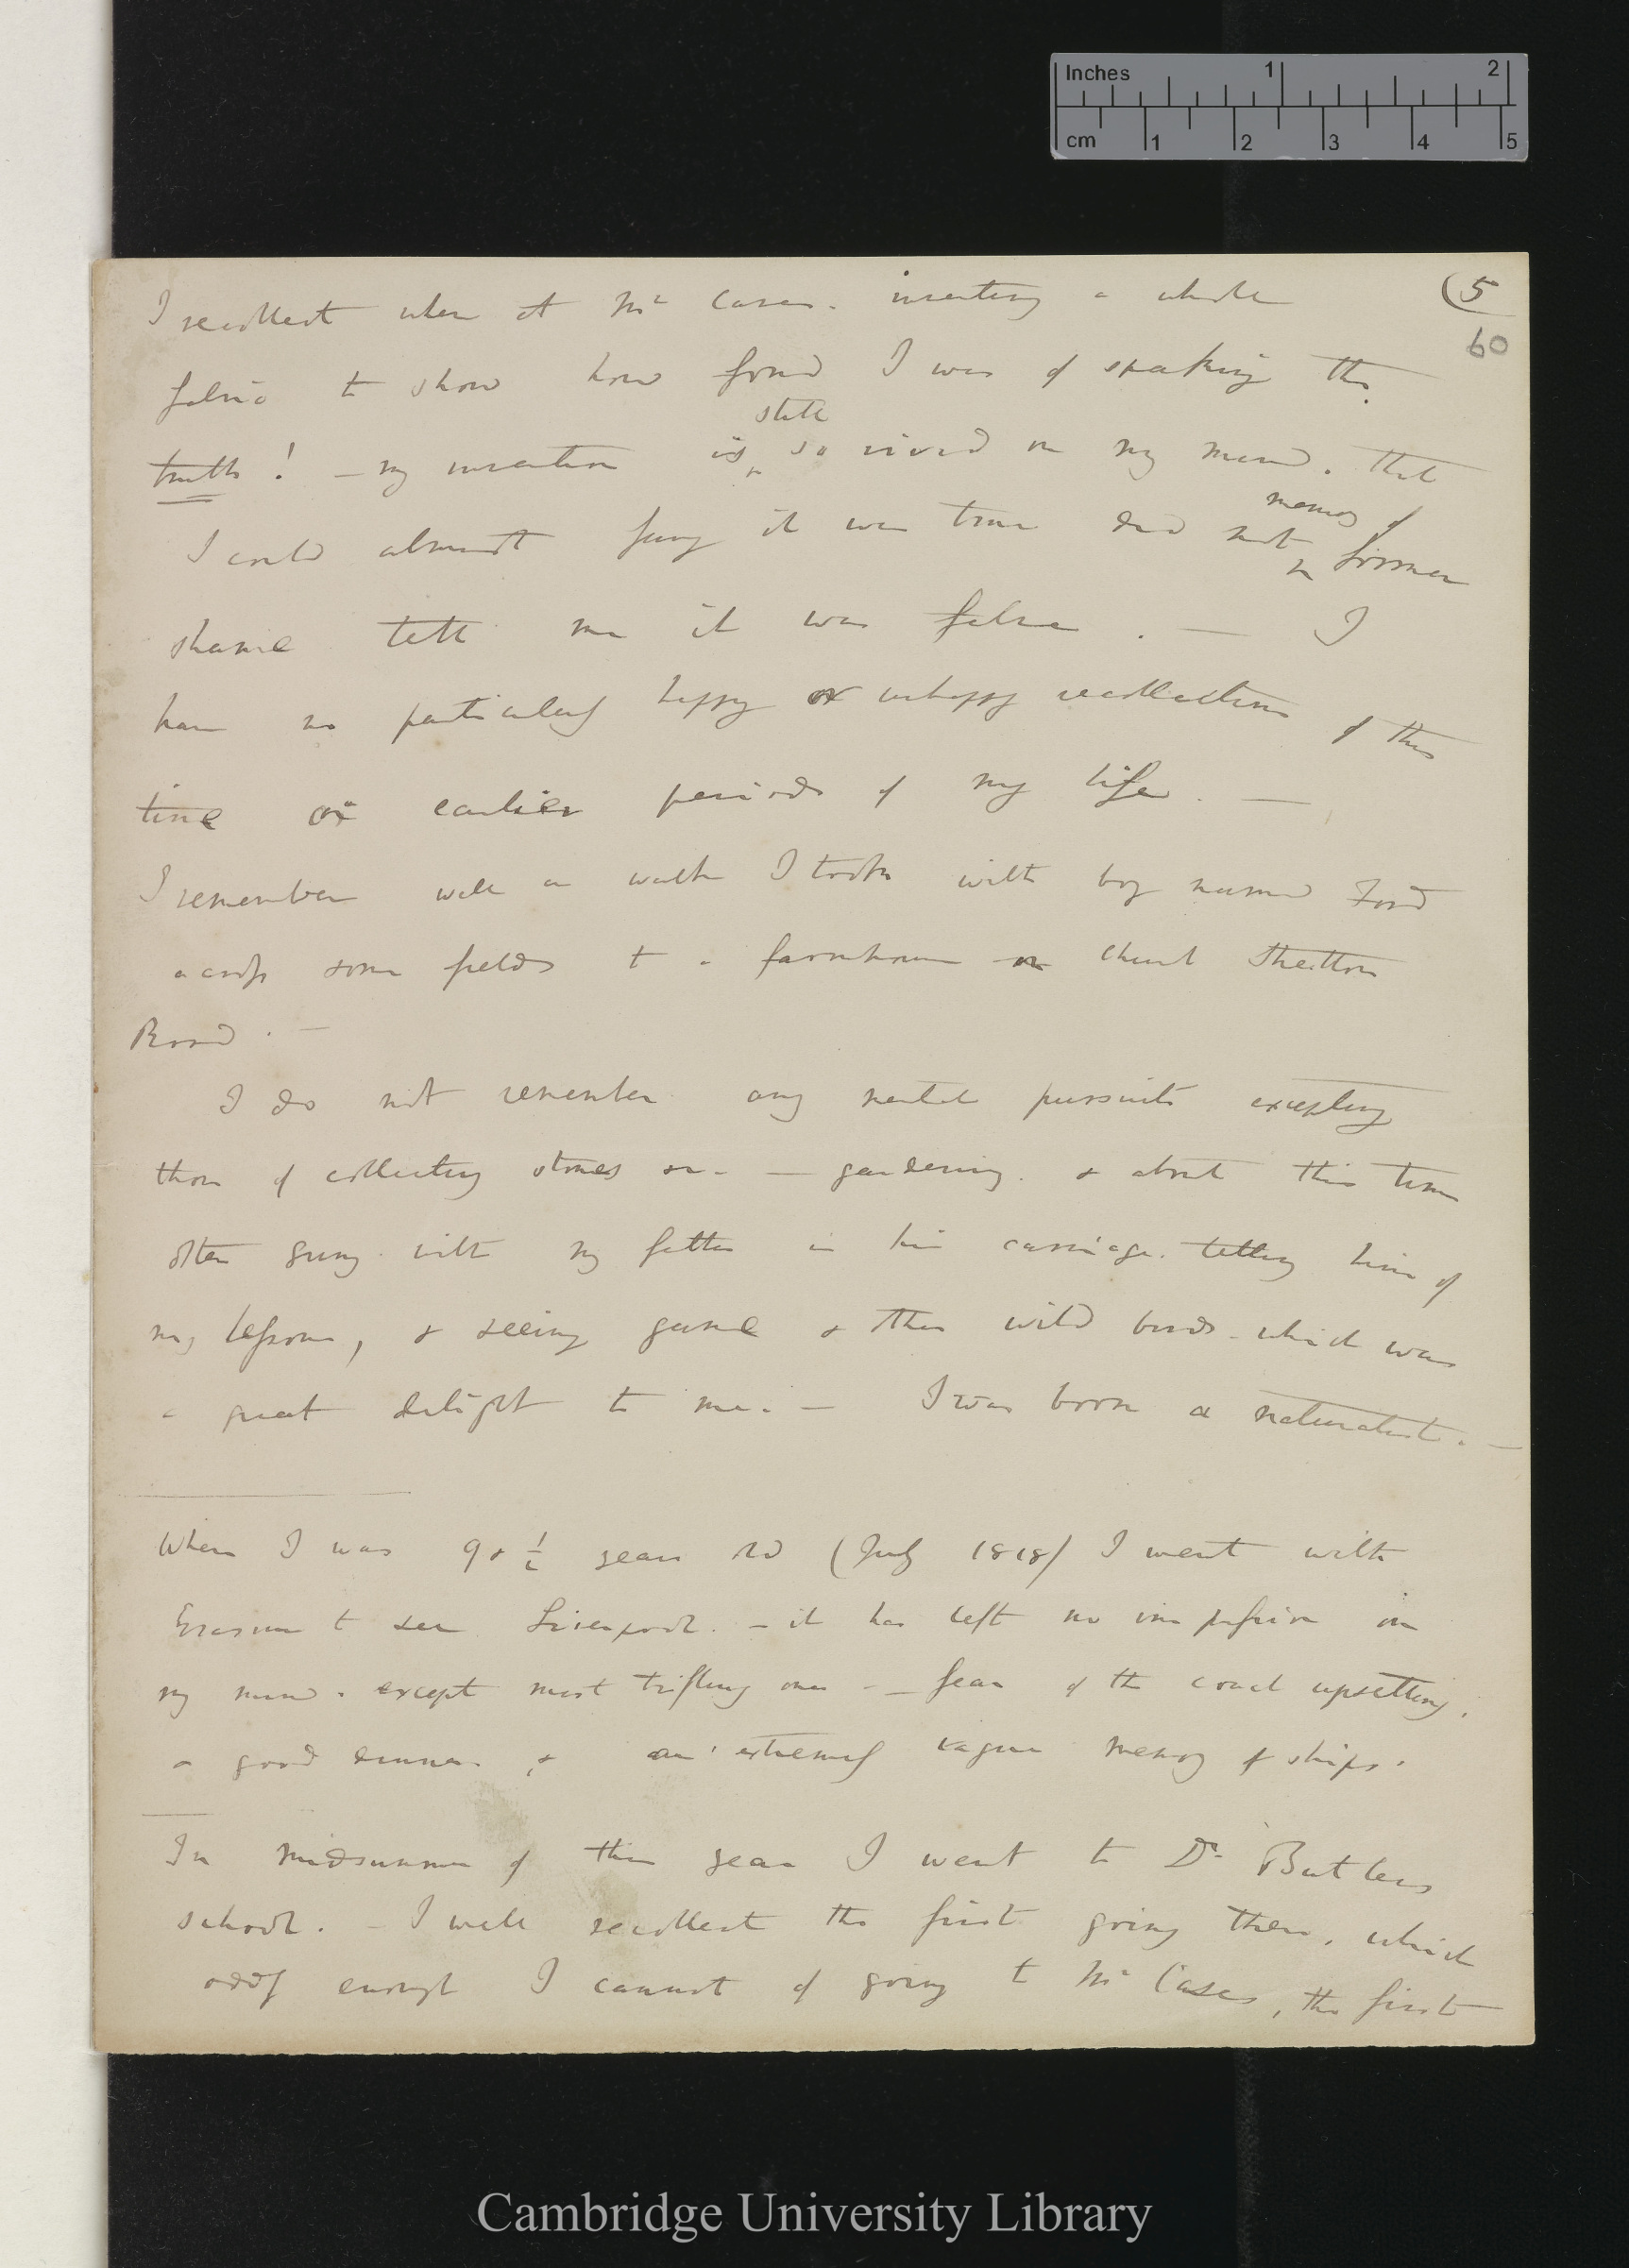 Inches 1 2
cm 1 2 3 4 5
(5
60
I recollect when at Mr Cases. inventing a whole
fabric to show how fond I was of speaking the
truth! — my invention is still so vivid on my mind. that
I could almost fancy it was true did not memory of former
shame tell me it was false. — I
have no particularly happy or unhappy recollections of this
time or earlier periods of my life. —
I remember well a walk I took with boy named Ford
across some fields to a farmhouse on Church Stretton
Road. —
I do not remember any mental pursuits excepting
those of collecting stones &c. — gardening. & about this time
often going with my father in his carriage. telling him of
my lessons, & seeing game & other wild birds. which was
a great delight to me. — I was born a naturalist. —
When I was 9 & ½ years old (July 1818) I went with
Erasmus to see Liverpool. — it has left no impression on
my mind. except most trifling ones — fear of the coach upsetting,
a good dinner. & an extremely vague memory of ships.
In Midsummer of this year I went to Dr Butlers
school. — I well recollect the first going there, which
oddly enough I cannot of going to Mr Cases, the first
Cambridge University Library